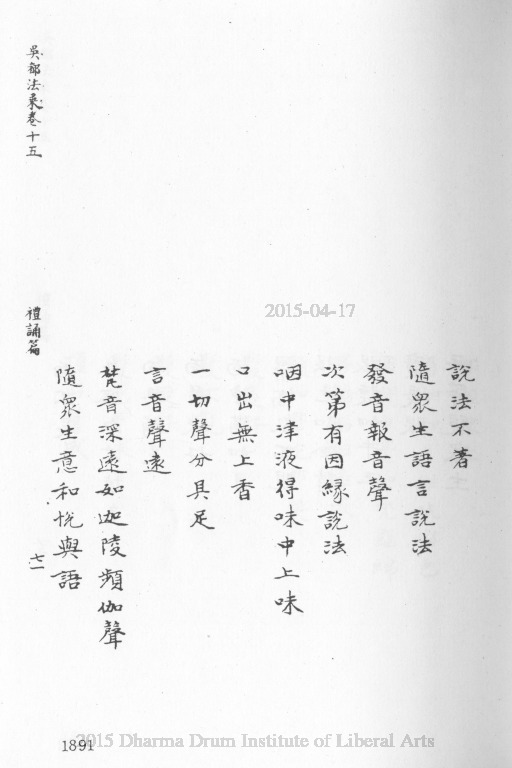 說法不著
隨眾生語言說法
發音報音聲
次第有因緣說法
咽中津液得味中上味
口出無上香
一切聲分具足
言音聲遠
梵音深遠如迦陵頻伽聲
隨眾生意和悅與語
吳都法乘卷十五
禮誦篇
七一
1891
2015-04-17
2015 Dharma Drum Institute of Liberal Arts